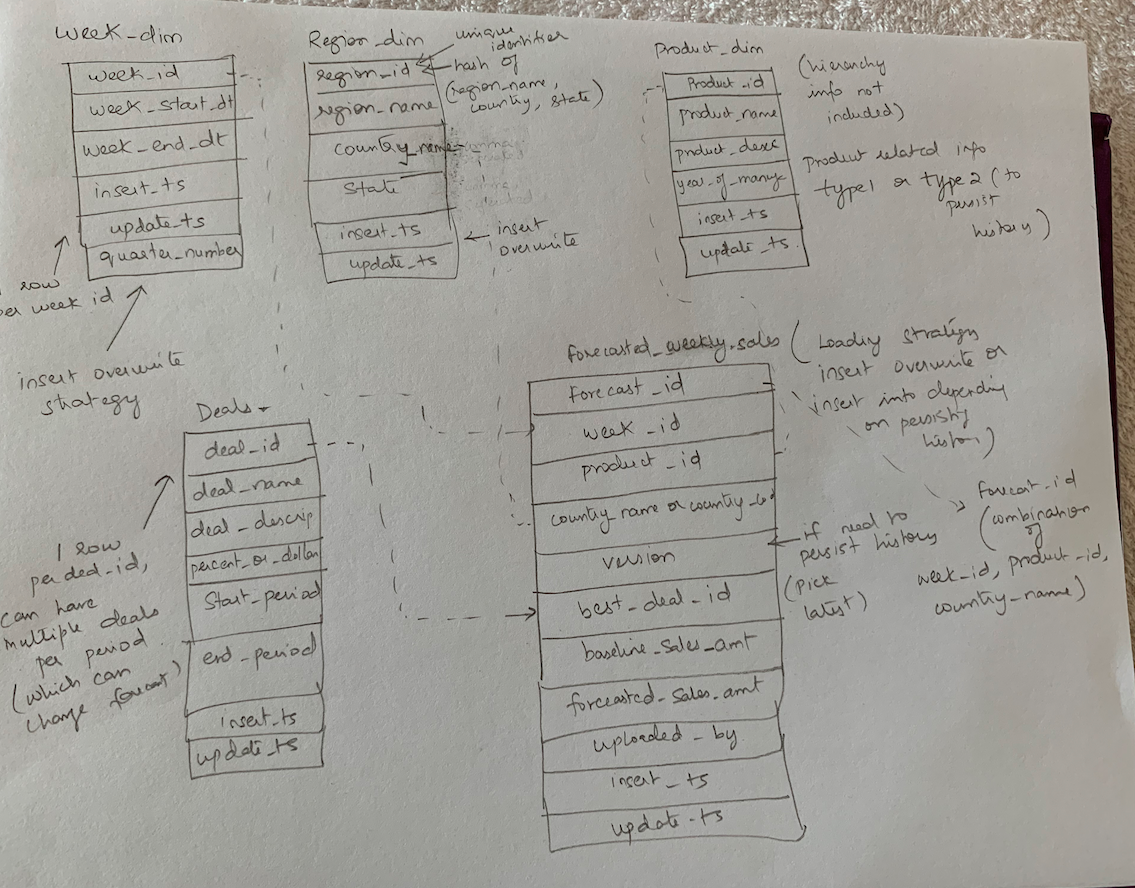 week_dim
week_id
week_start_dt
week_end_dt
insert_ts
update_ts
quarter_number
row
per week id
insert overwrite
strategy
Region_dim
region_id
region_name
country_name
State
insert_ts
update_ts
unique
identifier
hash of
(region_name,
country, state)
insert
overwrite
Product_dim
Product_id
product_name
product_desc
year_of_manuf
insert_ts
update_ts
(hierarchy
info not
included)
product related info
type1 or type2 (to
persist
history)
Deals
deal_id
deal_name
deal_descrip
percent_or_dollar
Start_period
end_period
insert_ts
update_ts
1 row
per deal_id,
can have
multiple deals
per period
(which can
change forecast)
forecasted_weekly_sales
forecast_id
week_id
product_id
country_name or country_cd
version
best_deal_id
baseline_sales_amt
forecasted_sales_amt
uploaded_by
insert_ts
update_ts
(Loading strategy
insert overwrite or
insert into depending
on persisting
history)
if need to
persist history
(pick
latest)
forecast_id
(combination
of
week_id, product_id,
country_name)